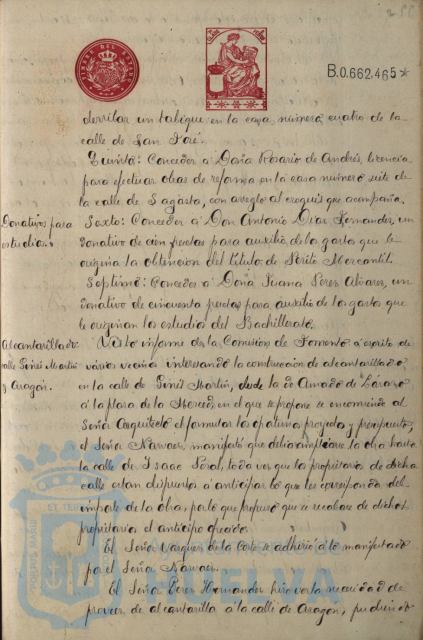 B.0.662.465*
derribar un tabique en la casa número cuatro de la
calle de San José.
Quinto: Conceder á Doña Rosario de Andrés, licencia
para efectuar obras de reforma en la casa número siete de
la calle de Sagasta, con arreglo al croquis que acompaña.
Donativos para
estudios.
Sexto: Conceder á Don Antonio Diaz Fernandez, un
donativo de cien pesetas para auxilio de los gastos que le
origina la obtención del título de Perito Mercantil.
Septimo: Conceder á Doña Juana Perez Alvarez, un
donativo de cincuenta pesetas para auxilio de los gastos que
le originan los estudios del Bachillerato.
Alcantarillado
calle Ginés Martin
y Aragón.
Visto informe de la Comision de Fomento á escrito de
varios vecinos interesando la construccion de alcantarillado
en la calle de Ginés Martin, desde la de Amado de Lázaro
á la plaza de la Merced, en el que se propone se encomiende al
Señor Arquitecto el formular los oportunos proyecto y presupuesto,
el Señor Narvaez, manifestó que debia ampliarse la obra hasta
la calle de Isaac Peral, toda vez que los propietarios de dicha
calle estan dispuestos á anticipar lo que les corresponda del
importe de la obra, por lo que propuso que se recabase de dichos
propietarios el anticipo ofrecido.
El Señor Vazquez de la Corte se adhirió á lo manifestado
por el Señor Narvaez.
El Señor Perez Hernandez hizo ver la necesidad de
proveer de alcantarilla á la calle de Aragón, pudiendo
HUELVA